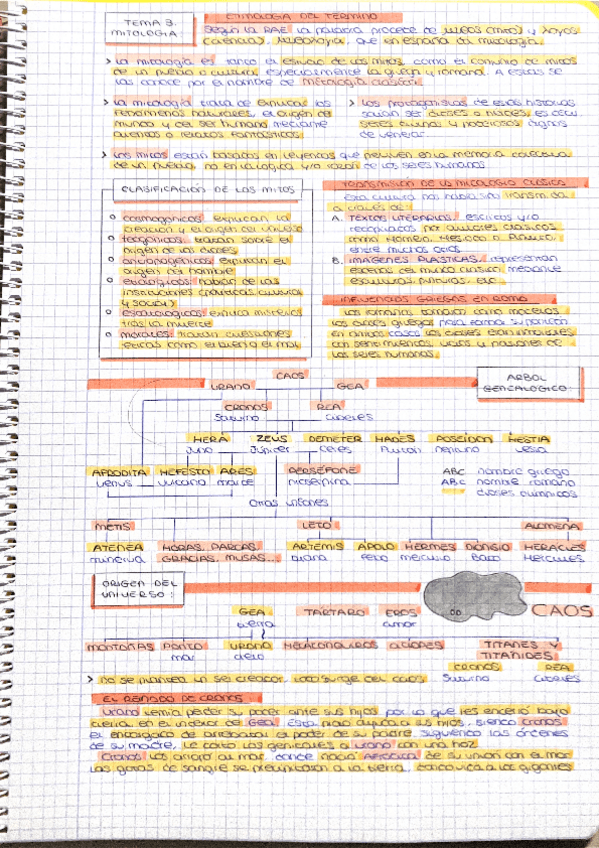 TEMA 3.
MITOLOGIA.
ETIMOLOGIA DEL TÉRMINO
Según la RAE la palabra procede de (mito) y
(ciencia), que en español da mitología.
> La mitología es tanto el estudio de los mitos, como el conjunto de mitos
de un pueblo o cultura, especialmente la griega y romana. A estas se
las conoce por el nombre de mitología clásica.
> La mitología trata de explicar los
fenómenos naturales, el origen del
mundo y del ser humano mediante
cuentos o relatos fantásticos.
> Los protagonistas de estas historias
solían ser dioses o héroes, es decir
seres divinos y poderosos dignos
de venerar.
> Los mitos están basados en leyendas que perviven en la memoria colectiva
de un pueblo, no en la lógica y/o razón de los seres humanos.
CLASIFICACIÓN DE LOS MITOS
o cosmogónicos: explican la
creación y el origen del universo
o teogónicos: tratan sobre el
origen de los dioses
o antropogénicos: explican el
origen del hombre
o etiológicos: hablan de las
instituciones (políticas, cultura
y social)
o escatológicos: explica misterios
tras la muerte
o morales: tratan cuestiones
éticas como el bien y el mal
TRANSMISIÓN DE LA MITOLOGÍA CLÁSICA
Esta cultura nos ha sido transmitida
a través de:
A. TEXTOS LITERARIOS, escritos y/o
recopilados por autores clásicos
como Homero, Hesíodo o
entre muchos otros
B. IMÁGENES PLÁSTICAS, representan
escenas del mundo clásico mediante
esculturas, pinturas, etc.
INFLUENCIAS GRIEGAS EN ROMA
Los romanos tomaron como modelos
los dioses griegos para formar su panteón
en ambos casos los dioses eran inmortales
con sentimientos, vicios y pasiones de
los seres humanos.
ARBOL
GENEALOGICO:
CAOS
URANO GEA
CRONOS REA
Saturno Cibeles
HERA ZEUS DEMETER HADES POSEIDON HESTIA
Juno Júpiter Ceres Plutón Neptuno Vesta
AFRODITA HEFESTO ARES PERSÉFONE
Venus Vulcano Marte Proserpina
ABC nombre griego
ABC nombre romano
dioses olímpicos
Otras uniones
METIS LETO ALCMENA
ATENEA HORAS, PARCAS, ARTEMIS APOLO HERMES DIONISIO HERACLES
Minerva GRACIAS, MUSAS... Diana Febo Mercurio Baco Hércules
ORIGEN DEL
UNIVERSO:
CAOS
GEA TARTARO EROS
tierra amor
MONTAÑAS PONTO URANO HECATONQUIROS CICLOPES TITANES Y
mar cielo TITANIDES
CRONOS REA
Saturno Cibeles
> no se plantea un ser creador, todo surge del caos
EL REINADO DE CRONOS
Urano temía perder su poder ante sus hijos por lo que les encerró bajo
tierra, en el interior de Gea. Esta pidió ayuda a sus hijos, siendo Cronos
el encargado de arrebatar el poder de su padre, siguiendo las órdenes
de su madre, le cortó los genitales a Urano con una hoz.
Cronos los arrojó al mar, donde nació Afrodita de su unión con el mar
las gotas de sangre se precipitaron a la tierra, dando vida a los gigantes